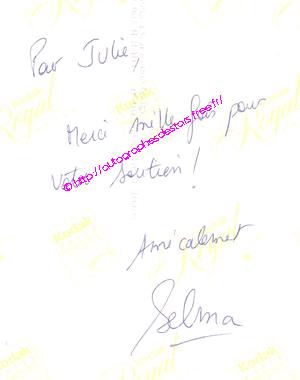 Pour Julie,
Merci mille fois pour
votre soutien !
Amicalement
Selma
© http://autographesdestars.free.fr/
Kodak
Royal